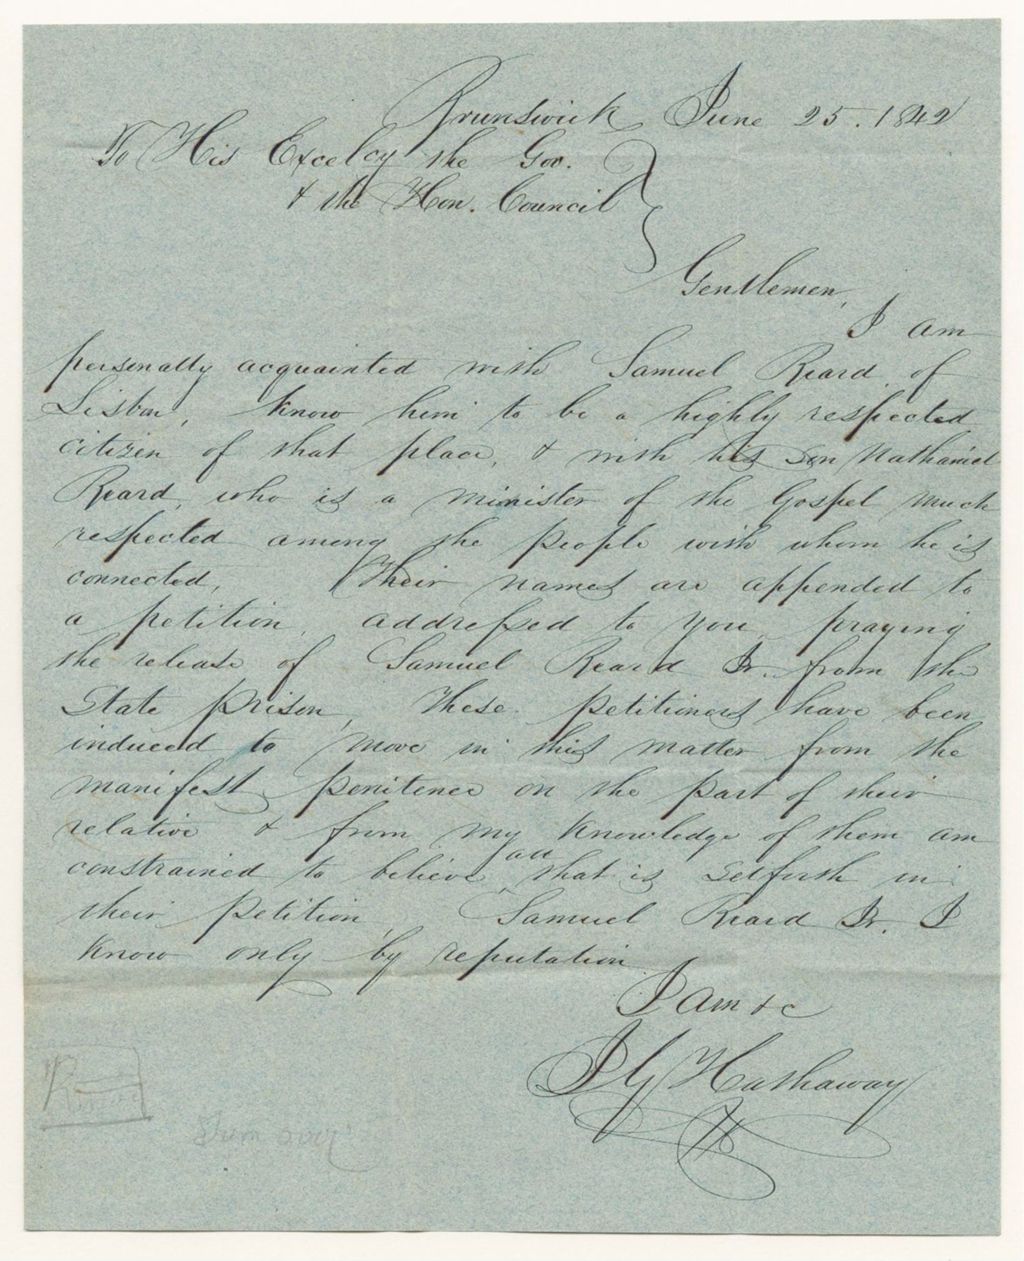 Brunswick June 25. 1842
To His Excelcy the Gov.
& the Hon. Council
Gentlemen,
I am
personally acquainted with Samuel Beard of
Lisbon, know him to be a highly respected
citizen of that place, & with his Son Nathaniel
Beard, who is a minister of the Gospel much
respected among the people with whom he is
connected. Their names are appended to
a petition addressed to you praying
the release of Samuel Beard Jr. from the
State prison, These petitioners have been
induced to move in this matter from the
manifest penitence on the part of their
relative & from my knowledge of them am
constrained to believe all that is set forth in
their petition Samuel Beard Jr. I
know only by reputation
I am &c
Hathaway